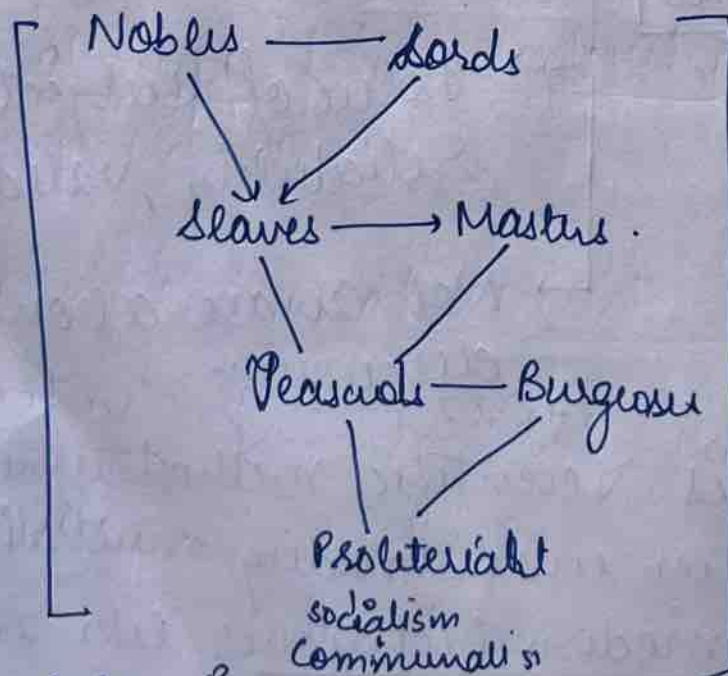 Nobles Lords
Slaves Masters.
Peasants Burgeosu
Proleteriakt
socialism
Communalis